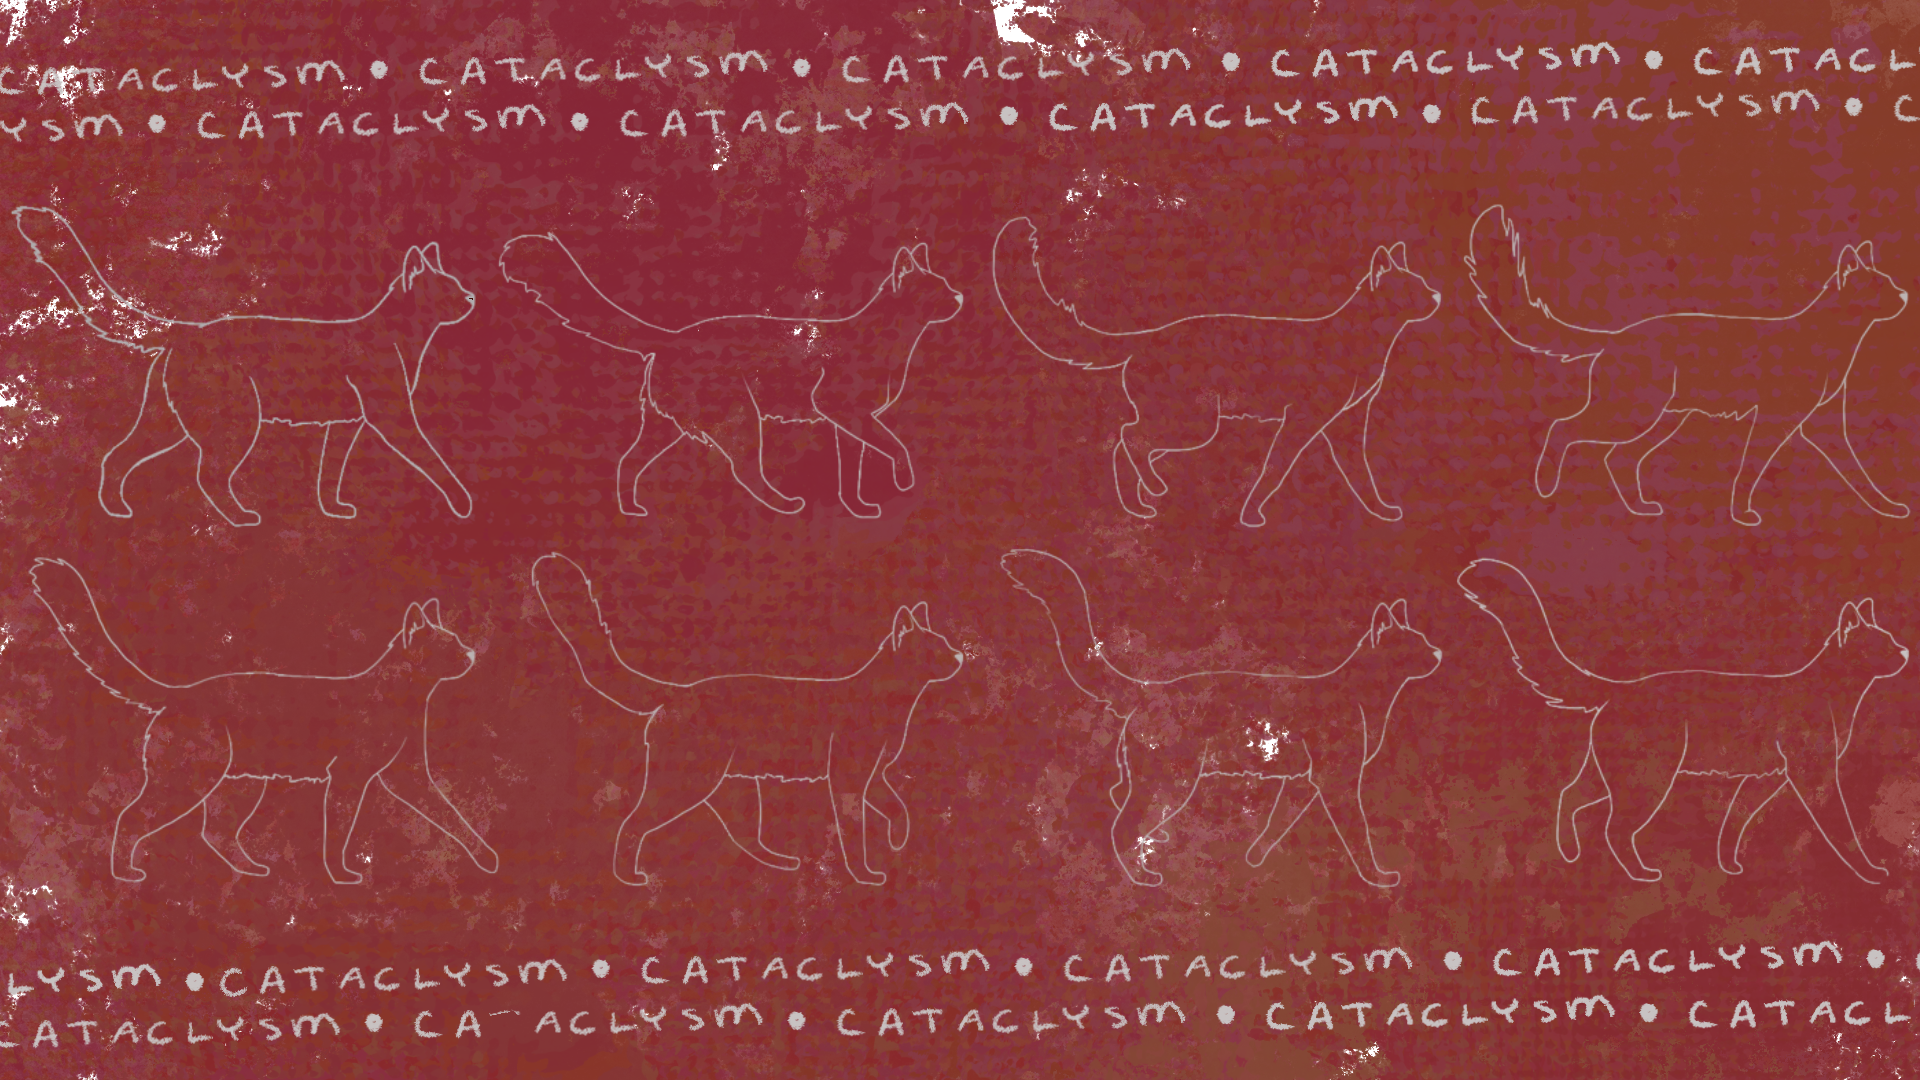 CATACLYSM • CATACLYSM • CATACLYSM • CATACLYSM • CATACL
YSM • CATACLYSM • CATACLYSM • CATACLYSM • CATACLYSM • C
LYSM • CATACLYSM • CATACLYSM • CATACLYSM • CATACLYSM •
CATACLYSM • CA ACLYSM • CATACLYSM • CATACLYSM • CATACL